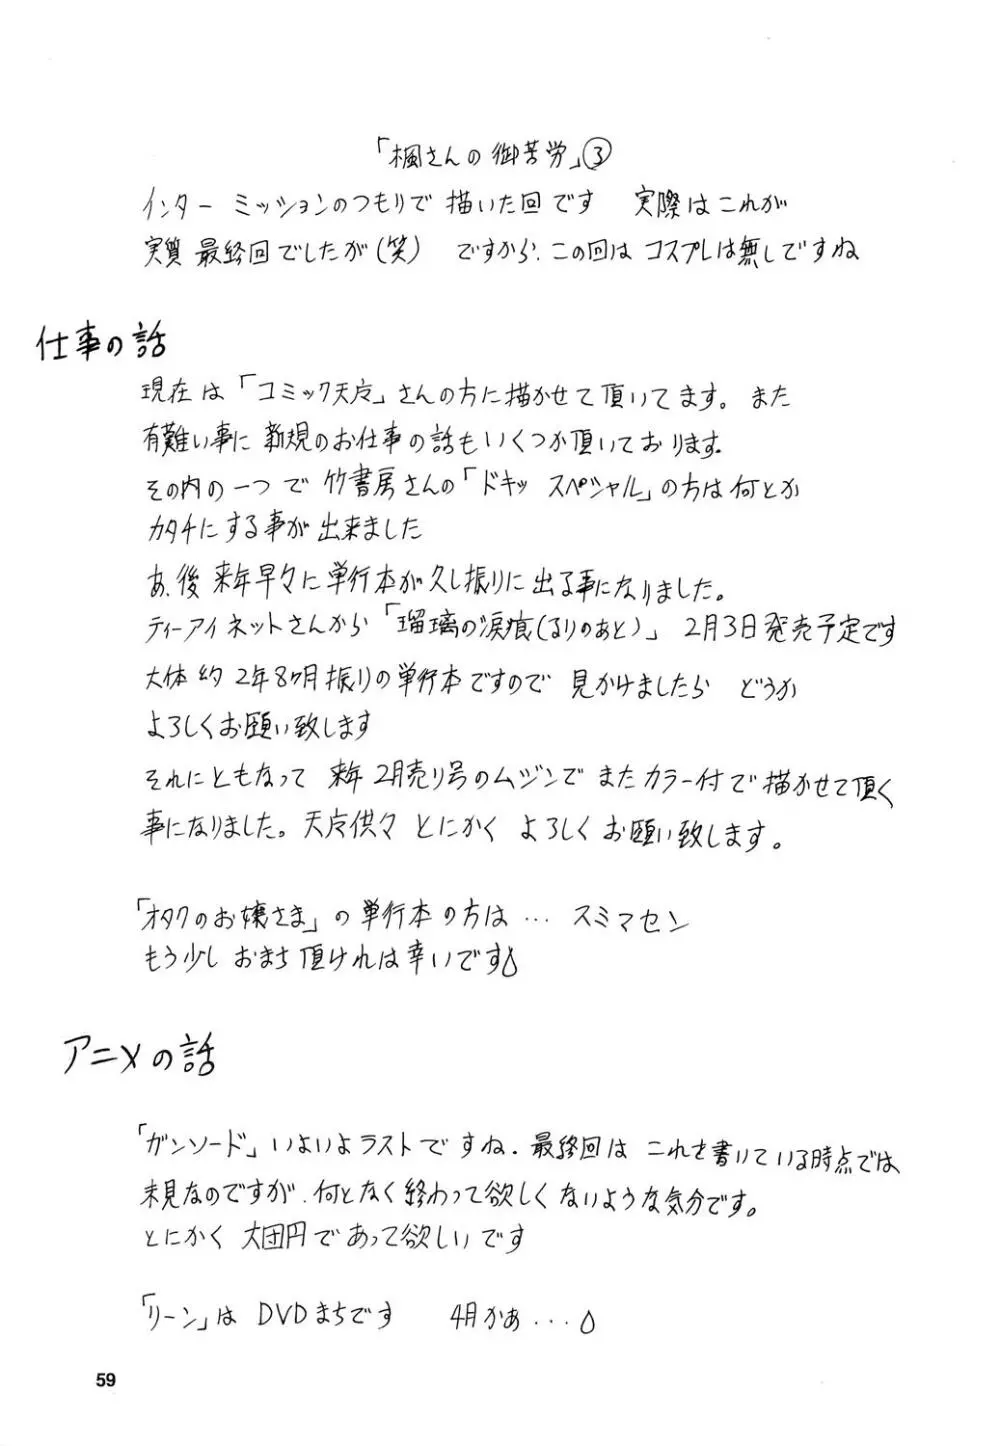 「楓さんの御苦労」③
インターミッションのつもりで描いた回です　実際はこれが
実質最終回でしたが(笑)　ですから、この回はコスプレは無しですね
仕事の話
現在は「コミック天魔」さんの方に描かせて頂いてます。また
有難い事に新規のお仕事の話もいくつか頂いております。
その内の一つで竹書房さんの「ドキッスペシャル」の方は何とか
カタチにする事が出来ました
あ、後来年早々に単行本が久し振りに出る事になりました。
ティーアイネットさんから「瑠璃の涙痕(るりのあと)」2月3日発売予定です
大体約2年8ヶ月振りの単行本ですので見かけましたらどうか
よろしくお願い致します
それにともなって来年2月売り号のムジンでまたカラー付で描かせて頂く
事になりました。天魔供々とにかくよろしくお願い致します。
「オタクのお嬢さま」の単行本の方は…スミマセン
もう少しおまち頂ければ幸いです
アニメの話
「ガンソード」いよいよラストですね。最終回はこれを書いている時点では
未見なのですが、何となく終わって欲しくないような気分です。
とにかく大団円であって欲しいです
「リーン」はDVDまちです　4月かぁ...
59